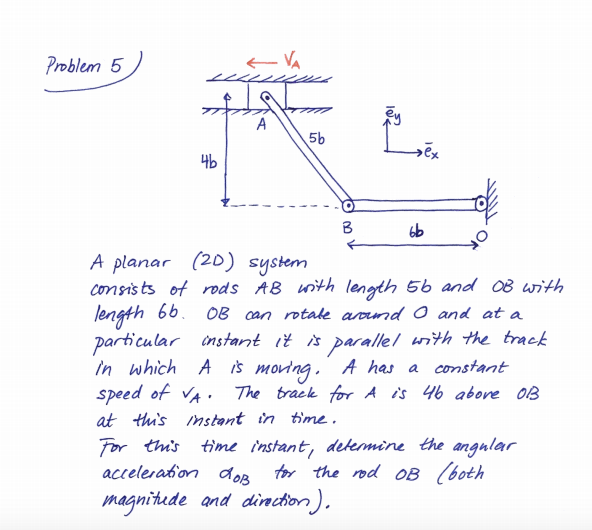 Problem 5
V_A
ē_y
A
5b
ē_x
4b
B
6b
O
A planar (2D) system
consists of rods AB with length 5b and OB with
length 6b. OB can rotate around O and at a
particular instant it is parallel with the track
in which A is moving. A has a constant
speed of v_A. The track for A is 4b above OB
at this instant in time.
For this time instant, determine the angular
acceleration α_OB for the rod OB (both
magnitude and direction).